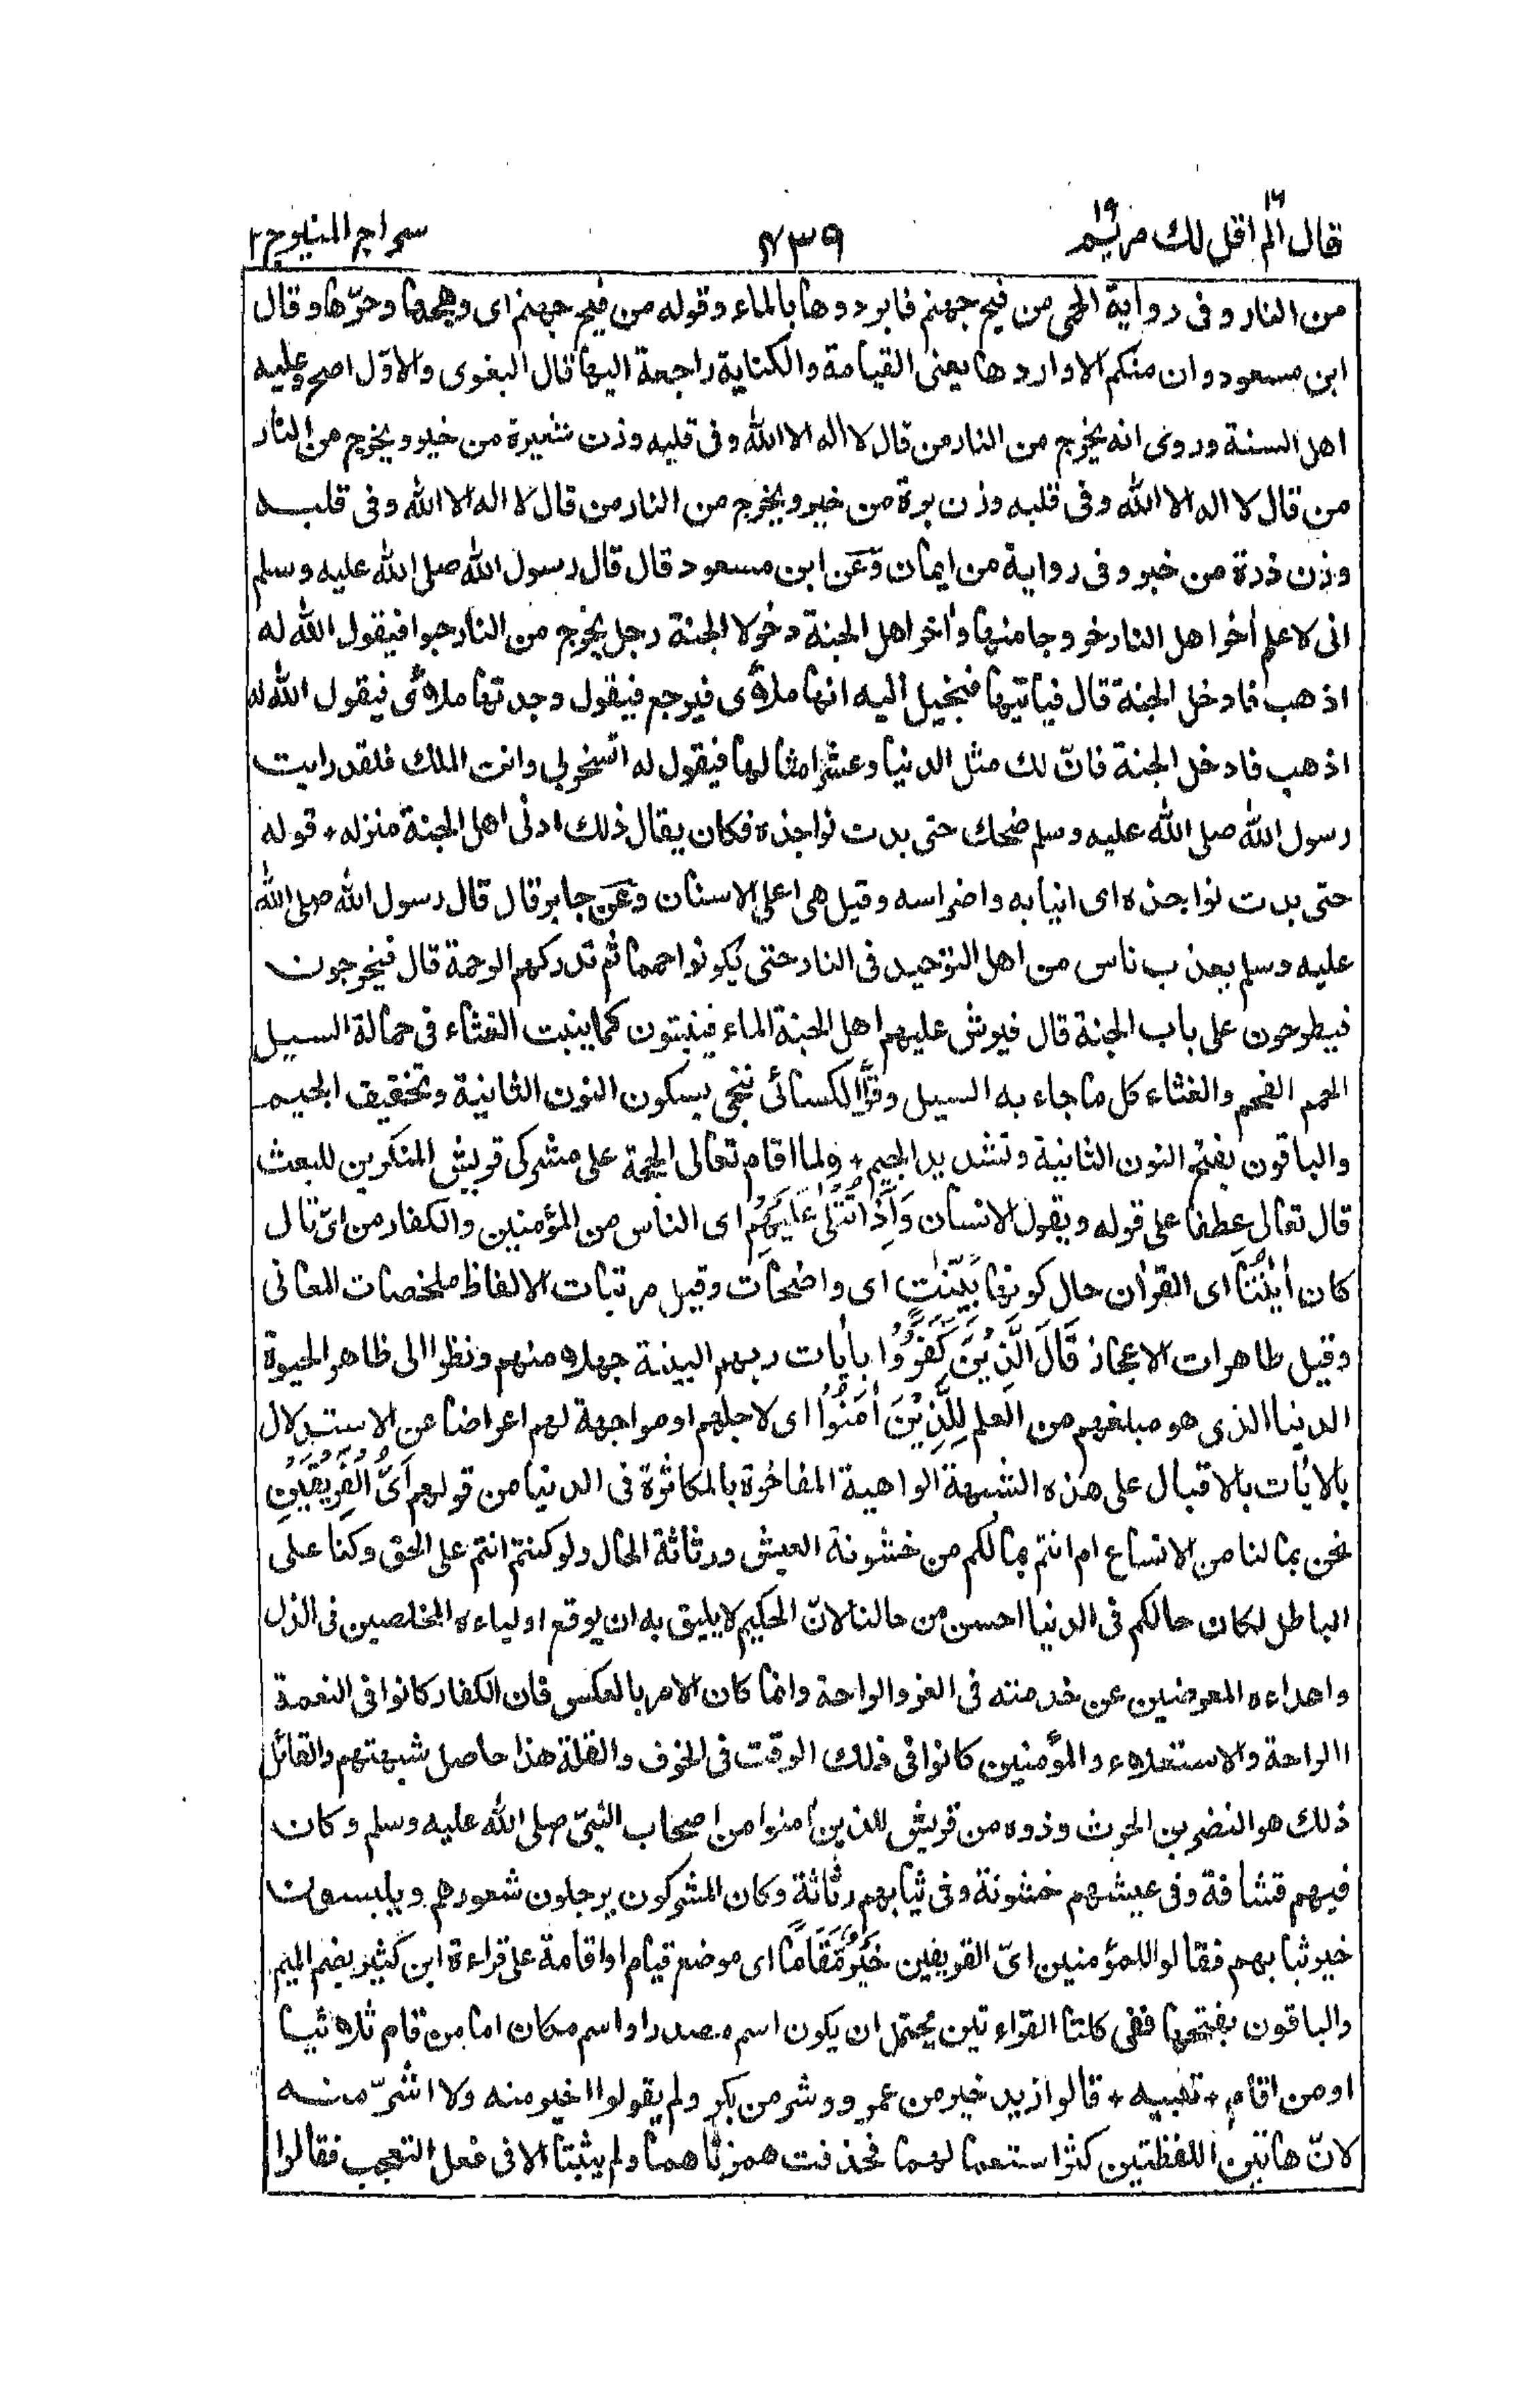 قال الم اقل لك ١٦ مريم ١٩
٤٣٩
سراج المنير ج ٢
من النار و فى رواية الحمى من فيح جهنم فابردوها بالماء وقوله من فيح جهنم اى وهجها وحرّها وقال
ابن مسعود وان منكم الا واردها يعنى القيامة والكناية راجعة اليها قال البغوى والاوّل اصح وعليه
اهل السنة وروى انه يخرج من النار من قال لا اله الا الله وفى قلبه وزن شعيرة من خير ويخرج من النار
من قال لا اله الا الله وفى قلبه وزن برة من خير ويخرج من النار من قال لا اله الا الله وفى قلبه
وزن ذرة من خير و فى رواية من ايمان وعن ابن مسعود قال قال رسول الله صلى الله عليه وسلم
انى لاعلم أخر اهل النار خروجا منها وأخر اهل الجنة دخولا الجنة رجل يخرج من النار حبوا فيقول الله له
اذهب فادخل الجنة قال فياتيها فيخيل اليه انها ملأى فيرجع فيقول وجدتها ملأى فيقول الله له
اذهب فادخل الجنة فانّ لك مثل الدنيا وعشر امثالها فيقول له اتسخر بي وانت الملك فلقد رايت
رسول الله صلى الله عليه وسلم ضحك حتى بدت نواجذه فكان يقال ذلك ادنى اهل الجنة منزله + قوله
حتى بدت نواجذه اى انيابه واضراسه وقيل هى اعلى الاسنان وعن جابر قال قال رسول الله صلى الله
عليه وسلم يعذب ناس من اهل التوحيد فى النار حتى يكونوا حمما ثم تدركهم الرحمة قال فيخرجون
فيطرحون على باب الجنة قال فيرش عليهم اهل الجنة الماء فينبتون كما ينبت الغثاء فى حمالة السيل
الحمم الفحم والغثاء كل ما جاء به السيل وقرأ الكسائى ننجى بسكون النون الثانية وتخفيف الجيم
والباقون بفتح النون الثانية وتشديد الجيم + ولما اقام تعالى الحجة على مشركى قريش المنكرين للبعث
قال تعالى عطفا على قوله ويقول الانسان وَاِذَا تُتْلٰى عَلَيْهِمْ اى الناس من المؤمنين والكفار من اىّ تال
كان اٰيٰتُنَا اى القران حال كونها بَيِّنٰتٍ اى واضحات وقيل مرتبات الالفاظ ملخصات المعانى
وقيل ظاهرات الاعجاز قَالَ الَّذِيْنَ كَفَرُوْا بأيات ربهم البينة جهلا منهم ونظرا الى ظاهر الحيوة
الدنيا الذى هو مبلغهم من العلم لِلَّذِيْنَ اٰمَنُوْا اى لاجلهم او مواجهة لهم اعراضا عن الاستدلال
بالأيات بالاقبال على هذه الشبهة الواهية المفاخرة بالمكاثرة فى الدنيا من قولهم اَىُّ الْفَرِيْقَيْنِ
نحن بما لنا من الاتساع ام انتم بما لكم من خشونة العيش ورثاثة الحال ولو كنتم انتم على الحق وكنا على
الباطل لكان حالكم فى الدنيا احسن من حالنا لانّ الحكيم لا يليق به ان يوقع اولياءه المخلصين فى الذل
واعداءه المعرضين عن خدمته فى العز والراحة وانما كان الامر بالعكس فان الكفار كانوا فى النعمة
االراحة والاستعلاء والمؤمنين كانوا فى ذلك الوقت فى الخوف والقلة هذا حاصل شبهتهم والقائل
ذلك هو النضر بن الحرث وذوه من قريش للذين أمنوا من اصحاب النبىّ صلى الله عليه وسلم وكان
فيهم قشافة وفى عيشهم خشونة وفى ثيابهم رثاثة وكان المشركون يرجلون شعورهم ويلبسون
خير ثيابهم فقالوا للمؤمنين اىّ الفريقين خَيْرٌ مَّقَامًا اى موضع قيام او اقامة على قراءة ابن كثير بضم الميم
والباقون بفتحها ففى كلتا القراءتين يحتمل ان يكون اسم مصدر او اسم مكان اما من قام ثلاثيا
او من اقام + تنبيه + قالوا زيد خير من عمرو وشر من بكر ولم يقولوا اخير منه ولا اشرّ منه
لانّ هاتين اللفظتين كثر استعمالهما فحذفت همزتاهما ولم يثبتا الا فى فعل التعجب فقالوا